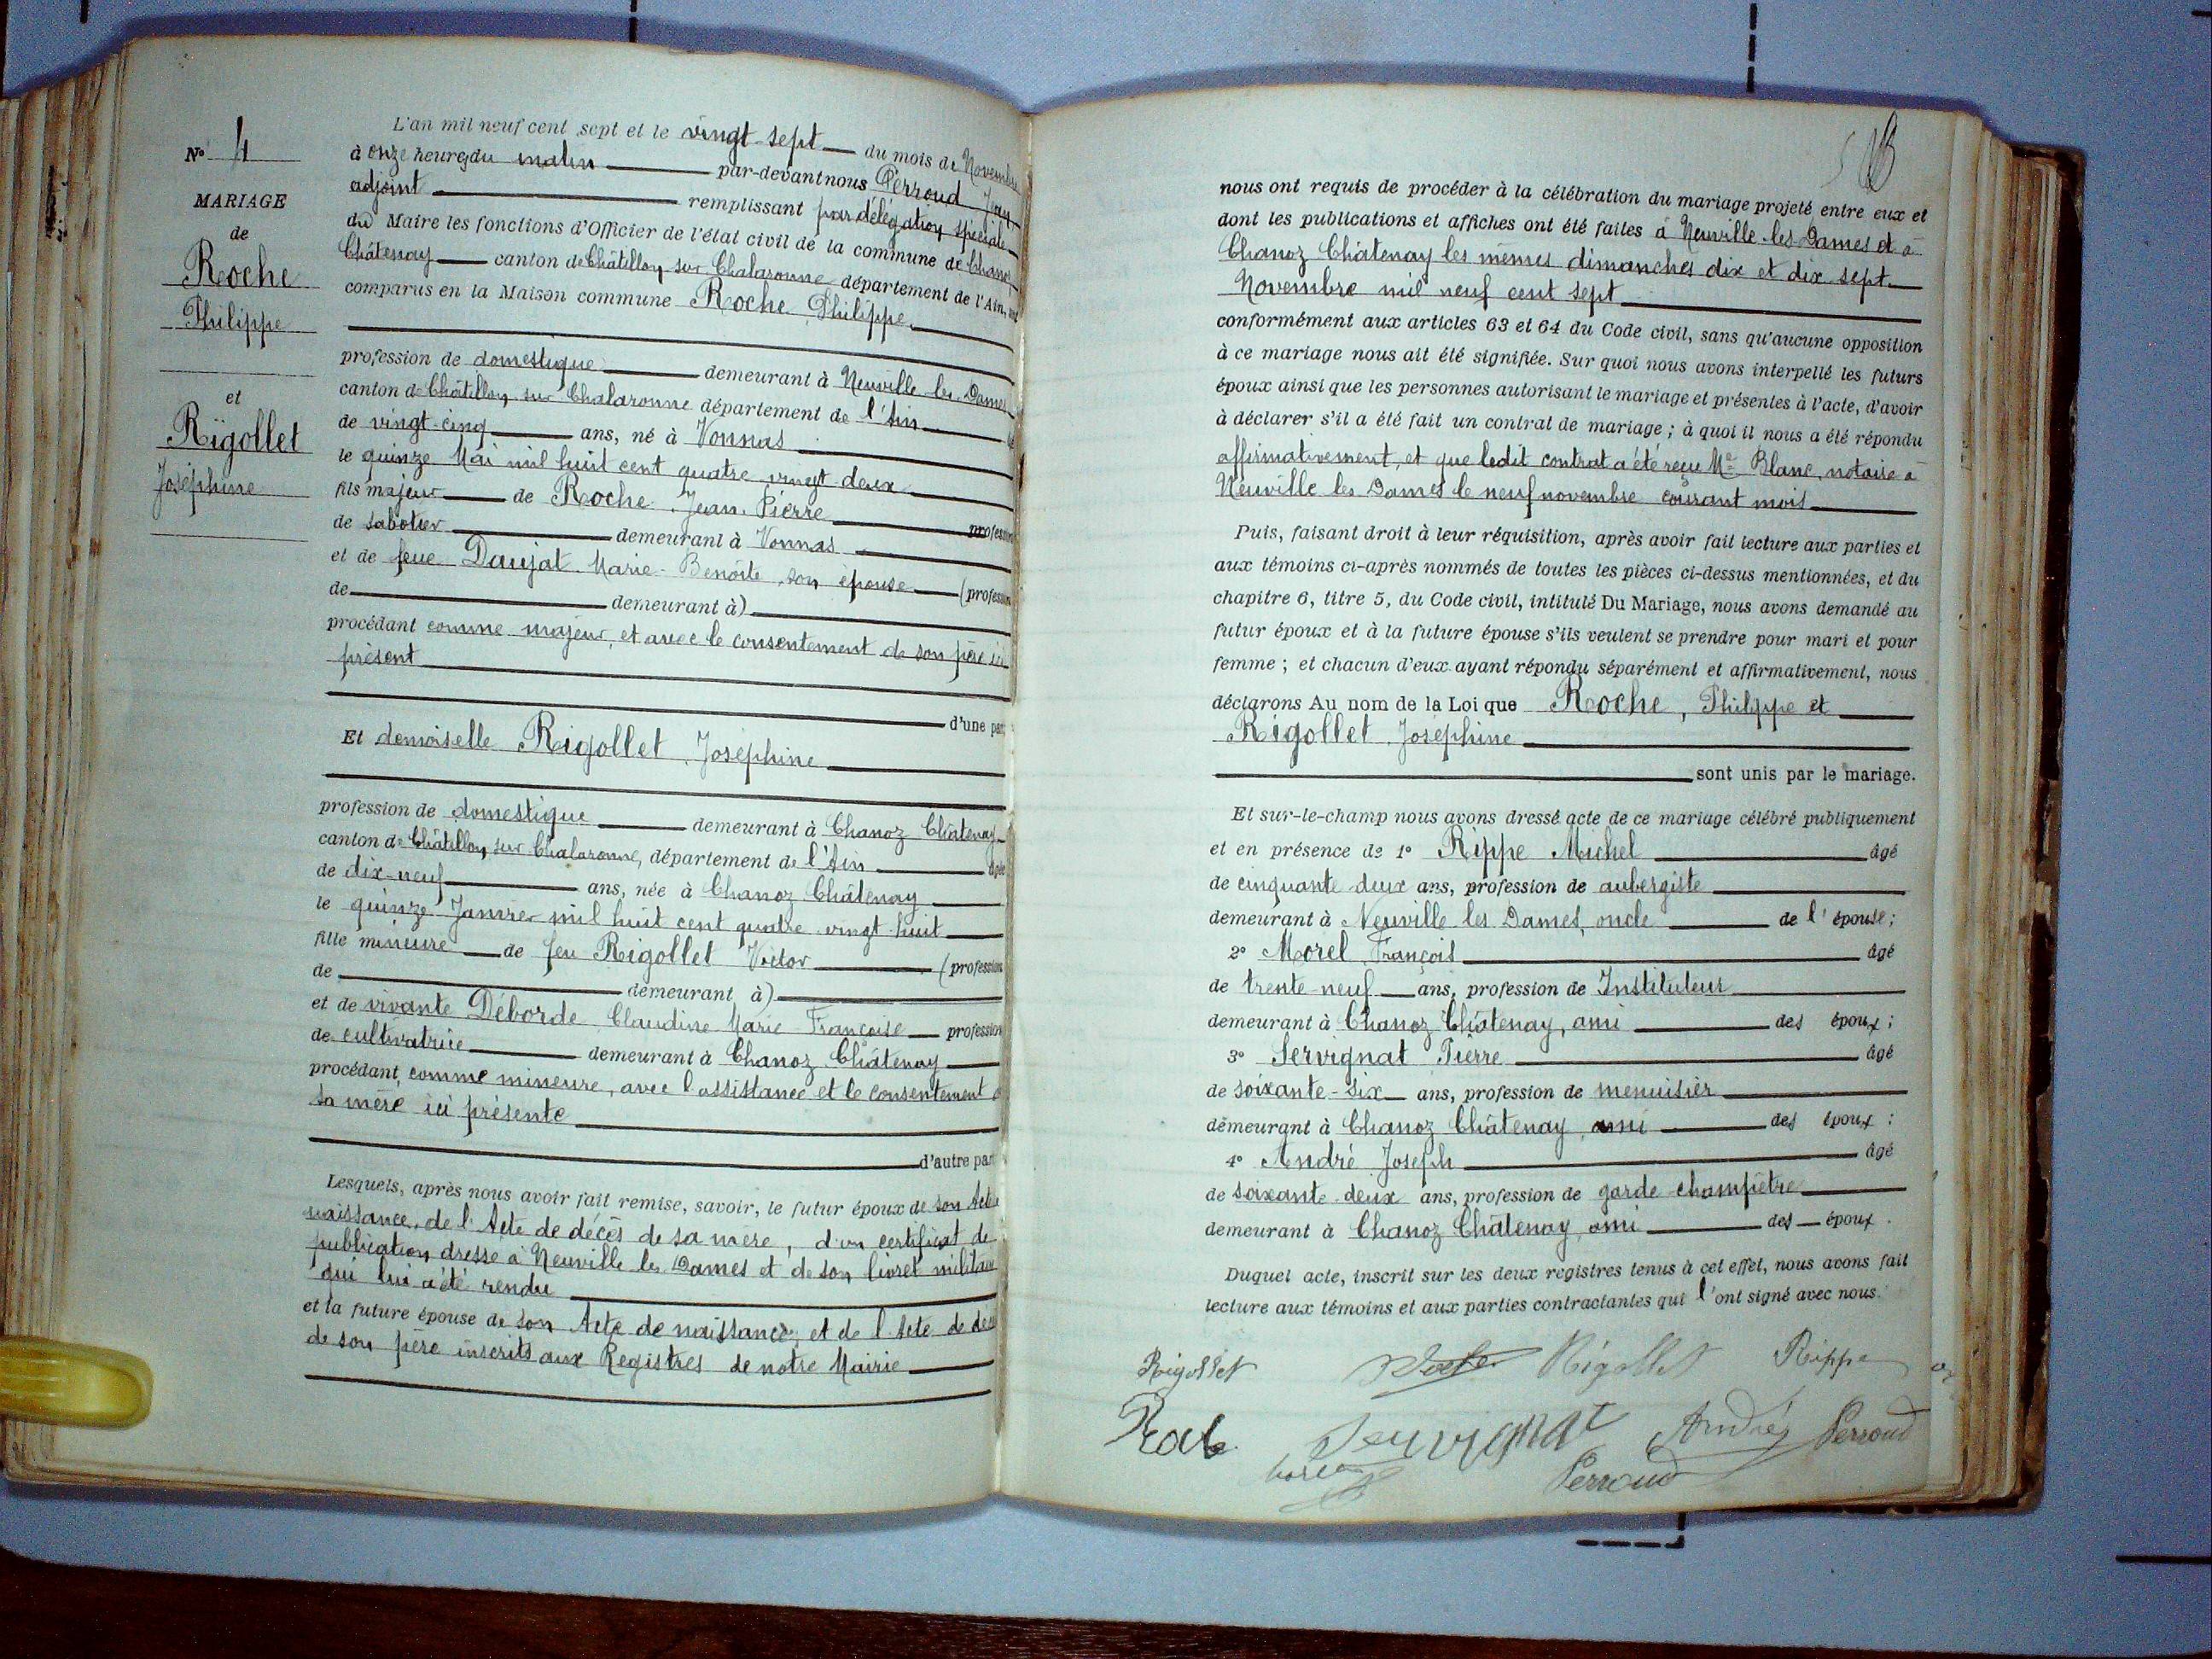 N° 4
MARIAGE
de
Roche
Philippe
et
Rigollet
Joséphine
L'an mil neuf cent sept et le vingt-sept du mois de Novembre
à onze heures du matin par-devant nous Perroud Jean
adjoint remplissant par délégation spéciale
du Maire les fonctions d'Officier de l'état civil de la commune de Chanoz
Châtenay canton de Châtillon sur Chalaronne département de l'Ain, ont
comparus en la Maison commune Roche Philippe
profession de domestique demeurant à Neuville les Dames
canton de Châtillon sur Chalaronne département de l'Ain
de vingt-cinq ans, né à Vonnas
le quinze Mai mil huit cent quatre vingt deux
fils majeur de Roche Jean Pierre profession
de sabotier demeurant à Vonnas
et de feue Daujat Marie-Benoite, son épouse (profession
de demeurant à)
procédant comme majeur, et avec le consentement de son père ici
présent
d'une part
Et demoiselle Rigollet Joséphine
profession de domestique demeurant à Chanoz Châtenay
canton de Châtillon sur Chalaronne, département de l'Ain âgée
de dix-neuf ans, née à Chanoz Châtenay
le quinze Janvier mil huit cent quatre vingt huit
fille mineure de feu Rigollet Victor (profession
de demeurant à)
et de vivante Déborde Claudine Marie Françoise profession
de cultivatrice demeurant à Chanoz Châtenay
procédant comme mineure, avec l'assistance et le consentement de
sa mère ici présente
d'autre part
Lesquels, après nous avoir fait remise, savoir, le futur époux de son Acte
naissance, de l'Acte de décès de sa mère, d'un certificat de
publication dressé à Neuville les Dames et de son livret militaire
qui lui a été rendu
et la future épouse de son Acte de naissance, et de l'Acte de décès
de son père inscrits aux Registres de notre Mairie
nous ont requis de procéder à la célébration du mariage projeté entre eux et
dont les publications et affiches ont été faites à Neuville-les-Dames et à
Chanoz Châtenay les mêmes dimanches dix et dix sept
Novembre mil neuf cent sept
conformément aux articles 63 et 64 du Code civil, sans qu'aucune opposition
à ce mariage nous ait été signifiée. Sur quoi nous avons interpellé les futurs
époux ainsi que les personnes autorisant le mariage et présentes à l'acte, d'avoir
à déclarer s'il a été fait un contrat de mariage ; à quoi il nous a été répondu
affirmativement, et que ledit contrat a été reçu Me Blanc, notaire à
Neuville les Dames le neuf novembre courant mois
Puis, faisant droit à leur réquisition, après avoir fait lecture aux parties et
aux témoins ci-après nommés de toutes les pièces ci-dessus mentionnées, et du
chapitre 6, titre 5, du Code civil, intitulé Du Mariage, nous avons demandé au
futur époux et à la future épouse s'ils veulent se prendre pour mari et pour
femme ; et chacun d'eux ayant répondu séparément et affirmativement, nous
déclarons Au nom de la Loi que Roche, Philippe et
Rigollet Joséphine
sont unis par le mariage.
Et sur-le-champ nous avons dressé acte de ce mariage célébré publiquement
et en présence de 1° Rippe Michel âgé
de cinquante deux ans, profession de aubergiste
demeurant à Neuville les Dames, oncle de l'épouse ;
2° Morel François âgé
de trente-neuf ans, profession de Instituteur
demeurant à Chanoz Châtenay, ami des époux ;
3° Servignat Pierre âgé
de soixante-six ans, profession de menuisier
demeurant à Chanoz Châtenay, ami des époux ;
4° André Joseph âgé
de soixante-deux ans, profession de garde-champêtre
demeurant à Chanoz Châtenay, ami des époux.
Duquel acte, inscrit sur les deux registres tenus à cet effet, nous avons fait
lecture aux témoins et aux parties contractantes qui l'ont signé avec nous.
Rigollet Rigollet Rippe
Servignat André Perroud
Perroud